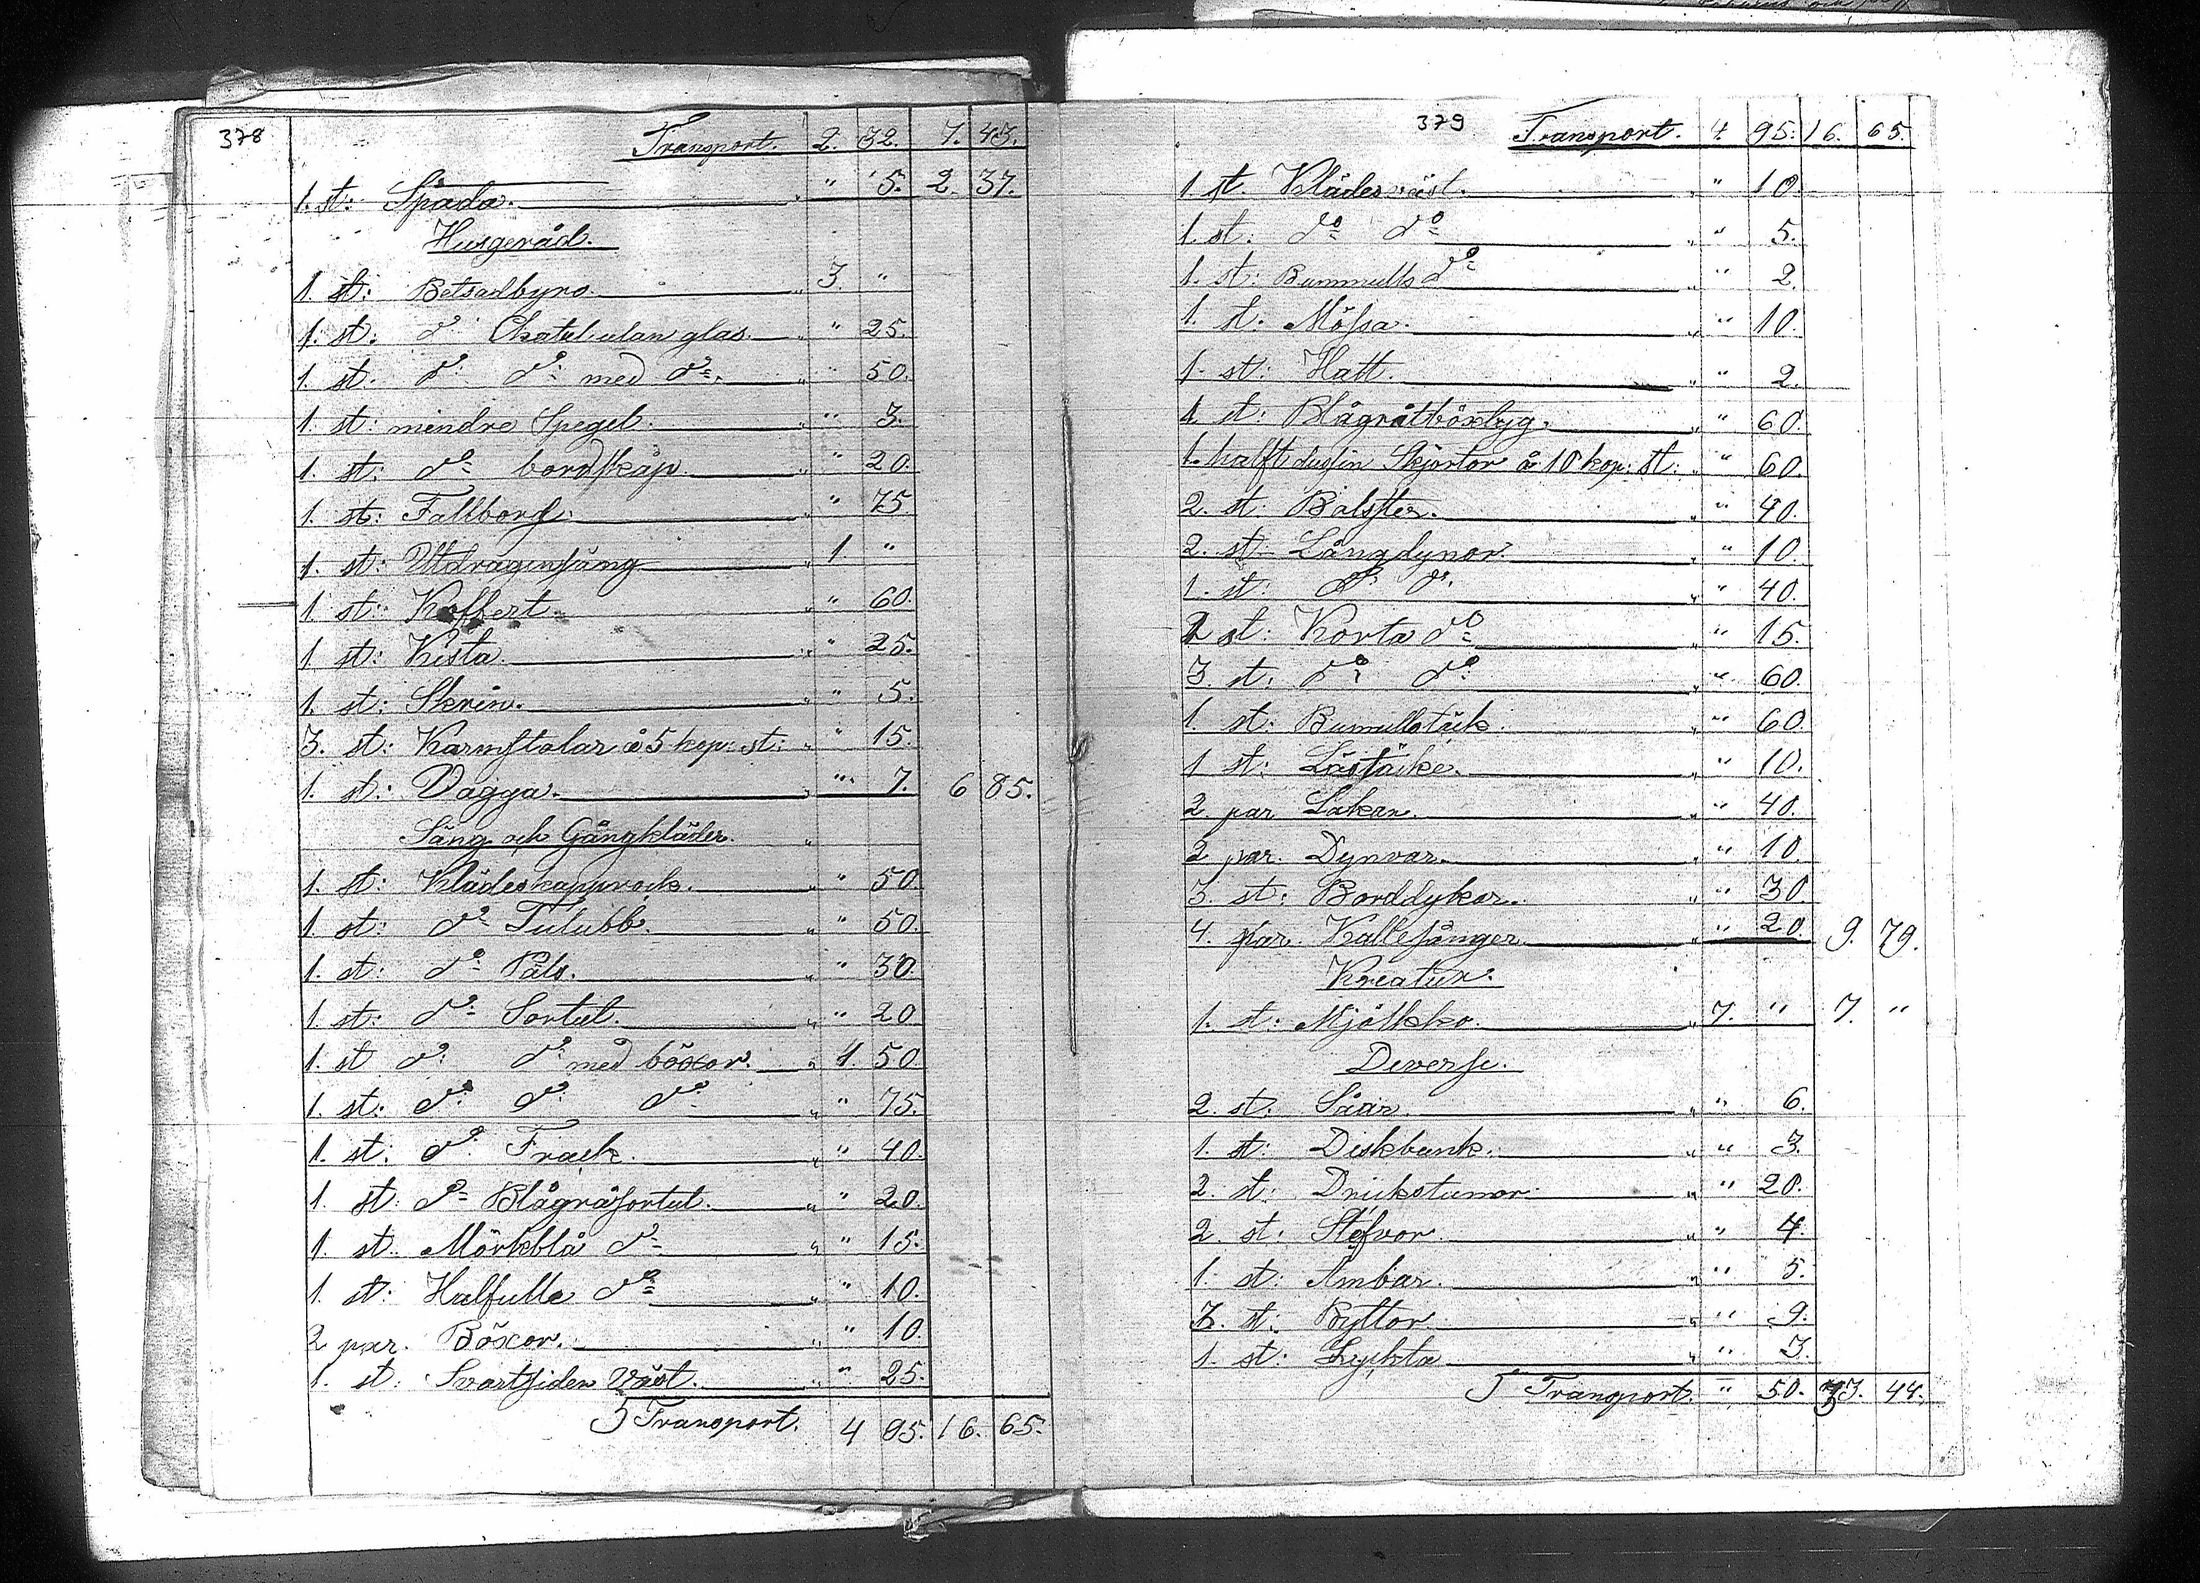 378
Transport. 2. 32. 7. 43.
1. st: Spada. " 5. 2. 37.
Husgeråd.
1. st: Betsadbyro. 3. "
1. st: do Chatul utan glas. " 25.
1 st. do do med do. " 50.
1. st: mindre Spegel. " 3.
1. st: do bordskåp " 20.
1. st: Fallbord. " 75
1. st: Utdragensäng 1 "
1 st: Koffert. " 60.
1 st: Kista. " 25.
1. st: Skrin. " 5.
3. st: Karmstolar à 5 kop: st: " 15.
1. st: Vagga. " 7. 6 85.
Säng och Gångkläder.
1. st: Klädeskapprock. " 50.
1 st: do Tulubb. " 50.
1. st: do Päls. " 30.
1 st: do Sortut. " 20
1 st do do med böxor. 1. 50
1 st: do do do " 75.
1. st: do Frack. " 40.
1 st: do Blågråsortut. " 20.
1. st. Mörkblå do " 15.
1. st: Halfulle do " 10.
2 par. Böxor. " 10
1. st: Svartsiden Väst. " 25.
Transport. 4 95. 16. 65.
379
Transport. 4 95. 16. 65.
1 st. Klädesväst. " 10
1. st: do do " 5.
1. st: Bummulls do " 2.
1. st: Mössa. " 10.
1. st: Hatt. " 2.
1 st: Blågråttböxtyg. " 60.
1. halft dusin Skjortor à 10 kop: st: " 60.
2. st: Bolster. " 40.
2. st: Långdynor. " 10.
1. st: do do. " 40.
2 st: Korta do " 15.
3. st: do do " 60.
1 st: Bumullstäck. " 60.
1 st: Löstäcke. " 10.
2 par Lakan. " 40.
2 par. Dynvar. " 10.
3. st: Borddykar. " 30.
4. par. Kallesånger " 20. 9. 79.
Kreatur.
1. st: Mjölkko. 7. " 7. "
Deverse.
2. st: Såar. " 6.
1. st: Diskbunk. " 3.
2. st: Drickstunnor. " 20.
2 st: Stäfvor. " 4.
1. st: Ämbar. " 5.
3. st: Byttor. " 9.
1. st: Lyckta " 3.
Transport. " 50. 33. 44.